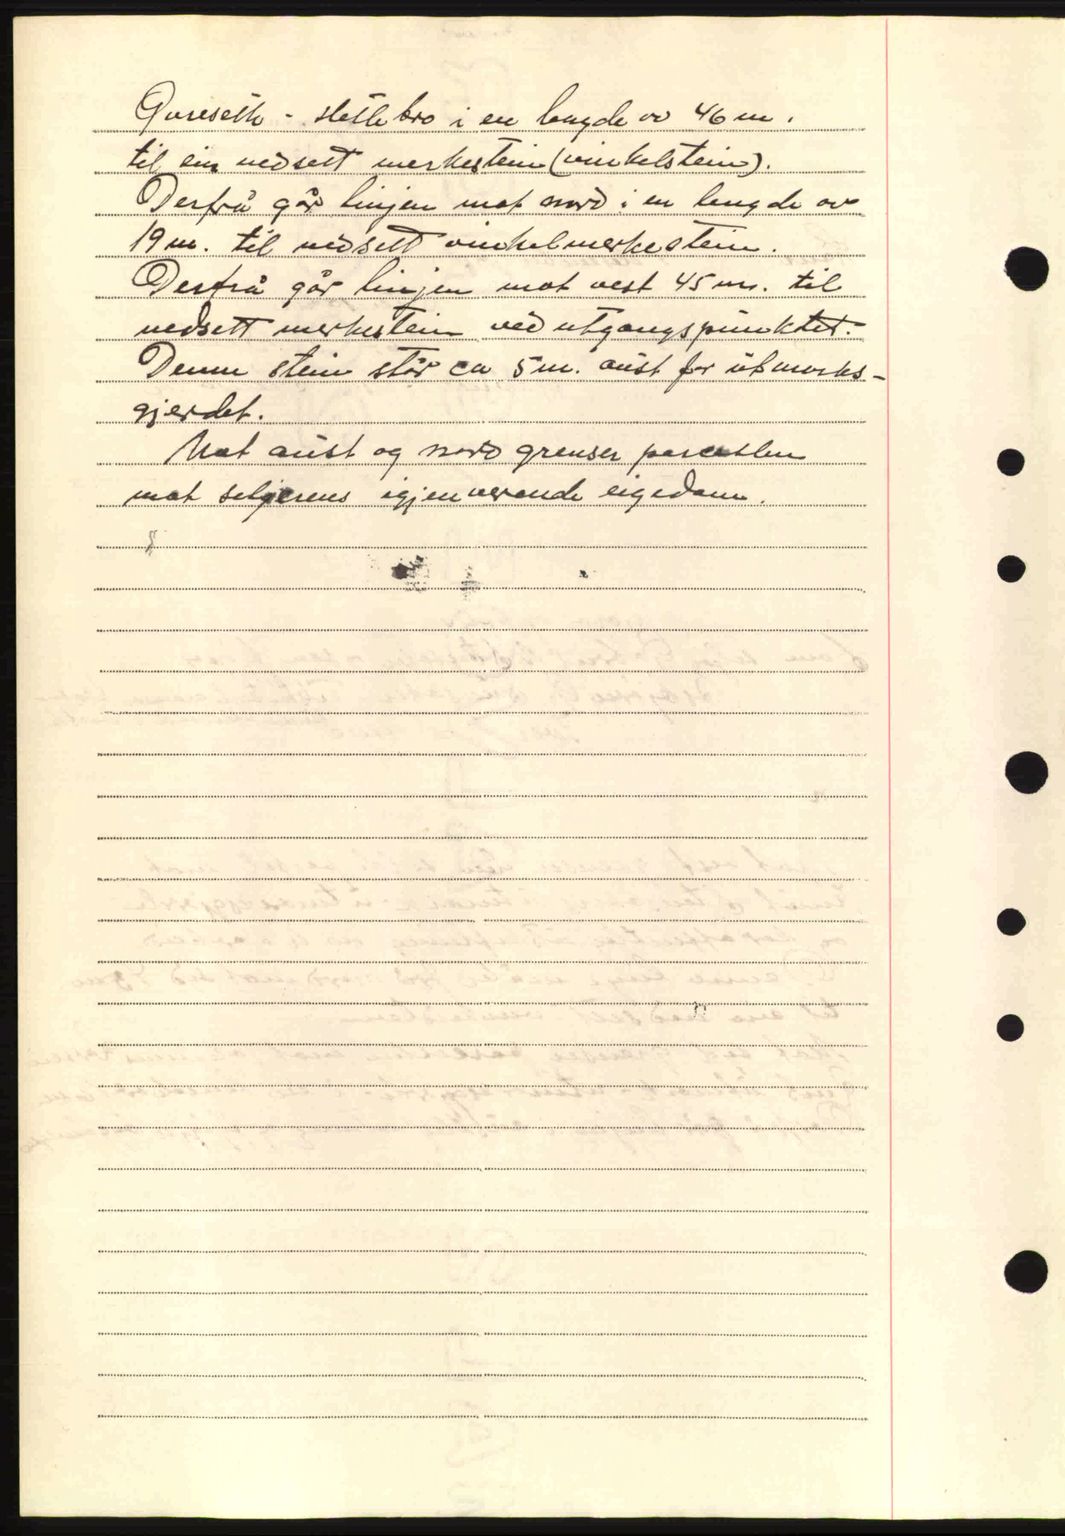 Gureseth - Slettebro i en lengde av 46 m.
til ein nedsett merkestein (vinkelstein).
Derfrå går linjen mot nord i en lengde av
19 m. til nedsett vinkelmerkestein.
Derfrå går linjen mot vest 45 m. til
nedsett merkestein ved utgangspunktet.
Denne stein står ca 5 m. aust for utmarks-
gjerdet.
Mot aust og nord grenser parcellen
mot seljerens igjenverende eigedom.